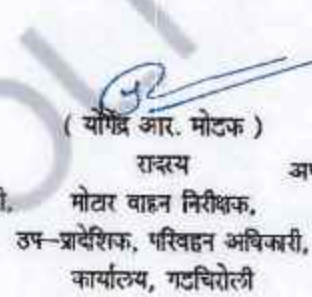 ( योगेंद्र आर. मोटक )
रादस्य
मोटार वाहन निरीक्षक,
उप-प्रादेशिक, परिवहन अधिकारी,
कार्यालय, गडचिरोली